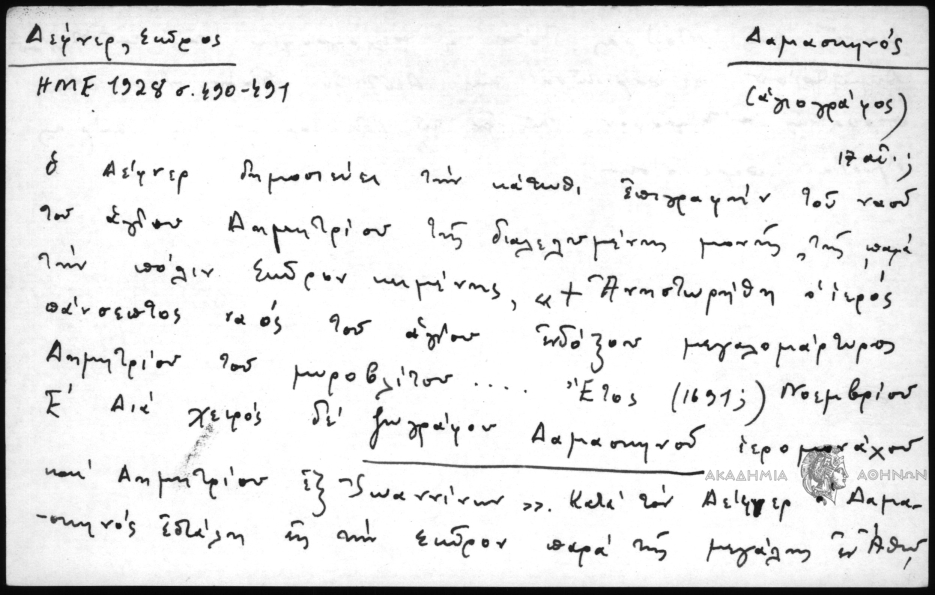 Δέφνερ, Σκῦρος
Δαμασκηνός
ΗΜΕ 1928 σ. 490-491
(ἁγιογράφος)
17 αἰ. ;
ὁ Δέφνερ δημοσιεύει τήν κάτωθι ἐπιγραφήν τοῦ ναοῦ
τοῦ ἁγίου Δημητρίου τῆς διαλελυμένης μονῆς, τῆς παρά
τήν πόλιν Σκῦρον κειμένης, « + Ἀνηστωρήθη ὁ ἱερός
πάνσεπτος ναός τοῦ ἁγίου ἐνδόξου μεγαλομάρτυρος
Δημητρίου τοῦ μυροβλίτου .... Ἔτος (1691;) Νοεμβρίου
Διά χειρός δέ ζωγράφου Δαμασκηνοῦ ἱερομονάχου
καί Δημητρίου ἐξ Ἰωαννίνων ». Κατά τόν Δέφνερ ὁ Δαμα-
-σκηνός ἐστάλη εἰς τήν Σκῦρον παρά τῆς μεγάλης ἐν Ἄθῳ,
ΑΚΑΔΗΜΙΑ ΑΘΗΝΩΝ